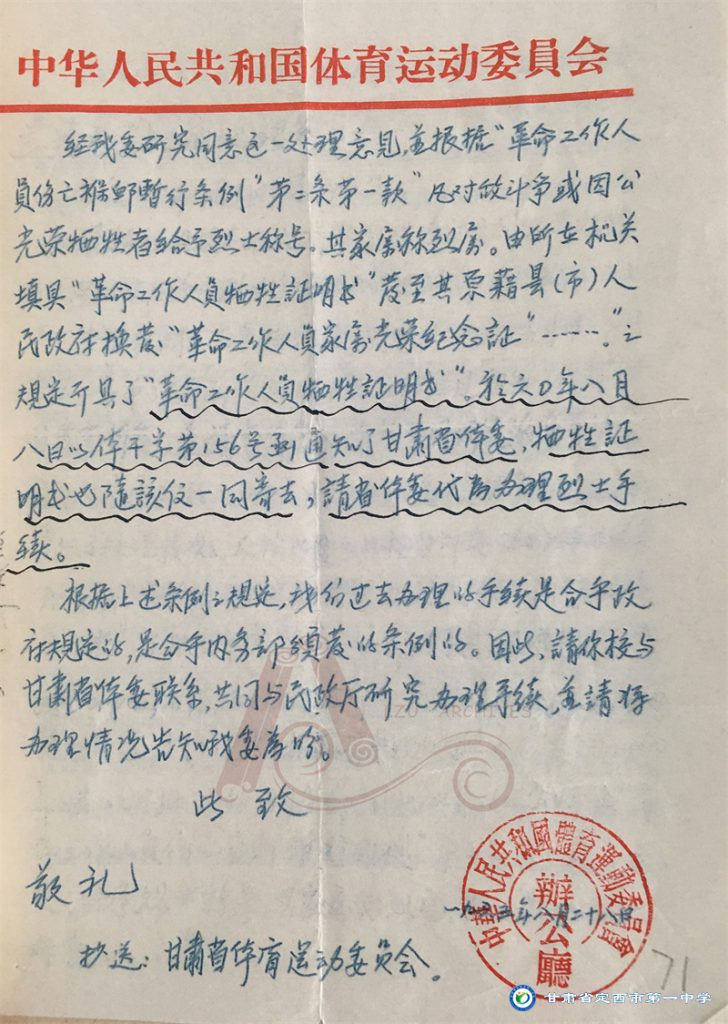 中华人民共和国体育运动委員会
经我委研究同意这一处理意见,並根据"革命工作人
員伤亡褓邮暫行条例"第二条第一款"凡对敌斗争或因公
光荣牺牲者给予烈士称号。其家属称烈属。由所在机关
填具"革命工作人員牺牲証明书"發至其原籍县(市)人
民政府换發"革命工作人員家属光荣纪念証"……。"之
規定开具了"革命工作人員牺牲証明书"。於六0年八月
八日以体干字第156号函通知了甘肃省体委,牺牲証
明书也隨該信一同寄去,請省体委代为办理烈士手
续。
根据上述条例之規定,我们过去办理的手续是合乎政
府規定的,是合乎内务部頒發的条例的。因此,請你校与
甘肃省体委联系,共同与民政厅研究办理手续,並請将
办理情况告知我委为盼。
此致
敬礼
中華人民共和國體育運動委員會
辦公廳
八月二十八日
抄送:甘肃省体育运动委员会。
71
甘肃省定西市第一中学